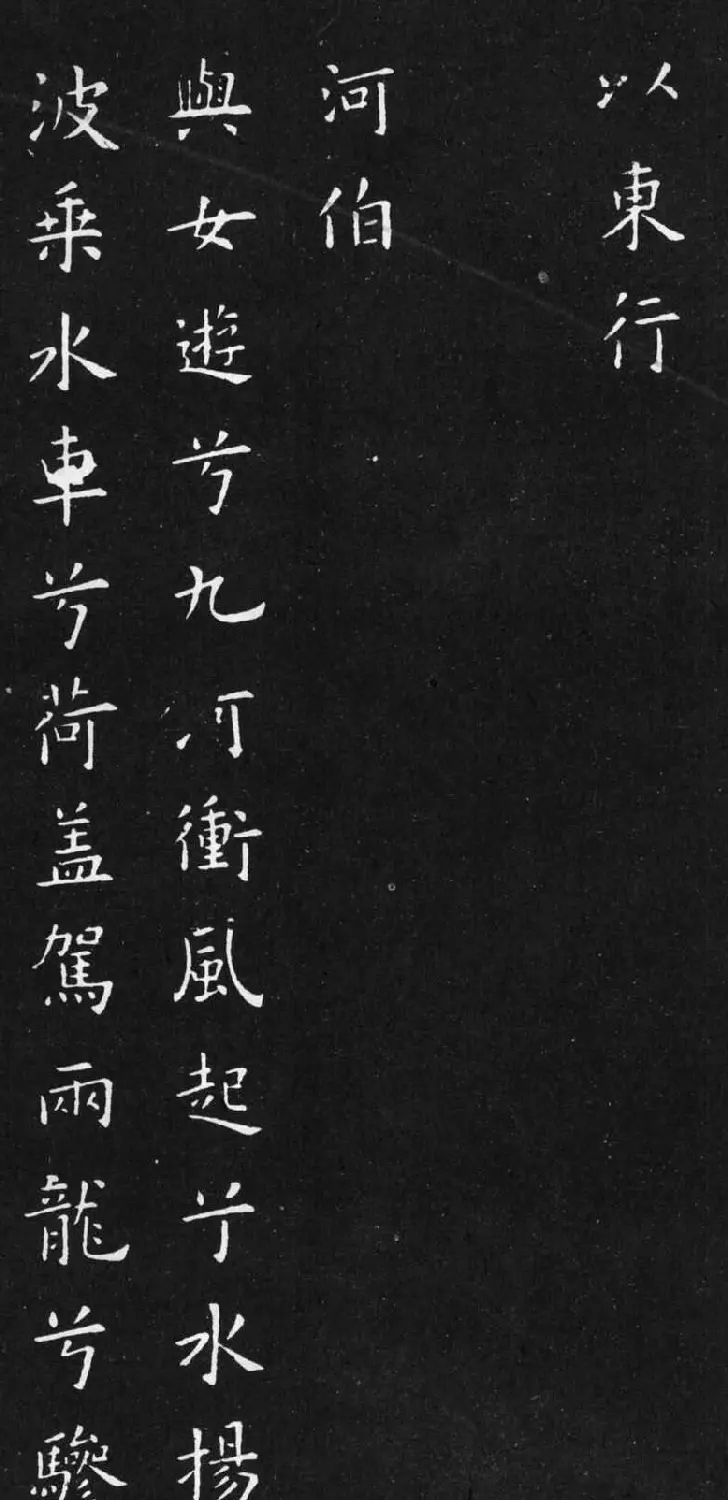 以東行
河伯
與女遊兮九河衝風起兮水揚
波乗水車兮荷盖駕兩龍兮驂